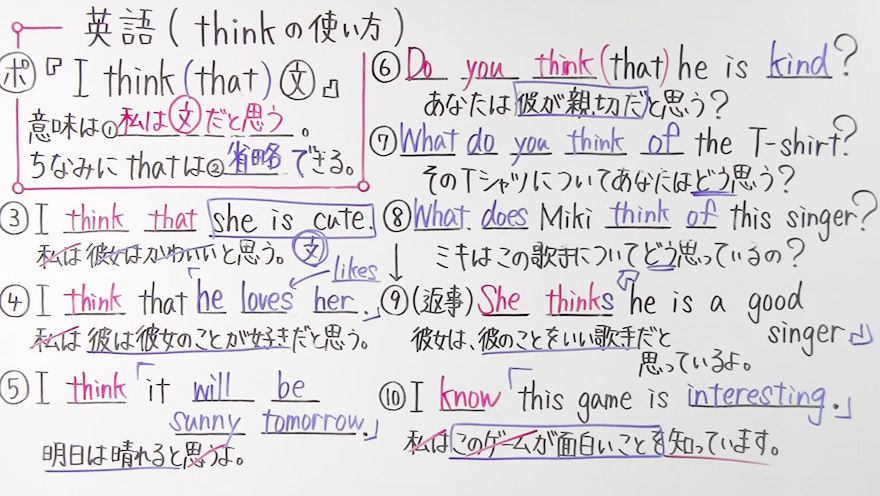 英語(thinkの使い方)
ポ『I think (that) 文』
意味は①私は文だと思う。
ちなみにthatは②省略できる。
③I think that she is cute.
私は彼女はかわいいと思う。文
likes
④I think that「he loves her.」
私は彼は彼女のことが好きだと思う。
⑤I think「it will be
sunny tomorrow.」
明日は晴れると思うよ。
⑥Do you think (that) he is kind?
あなたは彼が親切だと思う?
⑦What do you think of the T-shirt?
そのTシャツについてあなたはどう思う?
⑧What does Miki think of this singer?
ミキはこの歌手についてどう思っているの?
↓⑨(返事)She thinks「he is a good
singer」
彼女は、彼のことをいい歌手だと
思っているよ。
⑩I know「this game is interesting.」
私はこのゲームが面白いことを知っています。